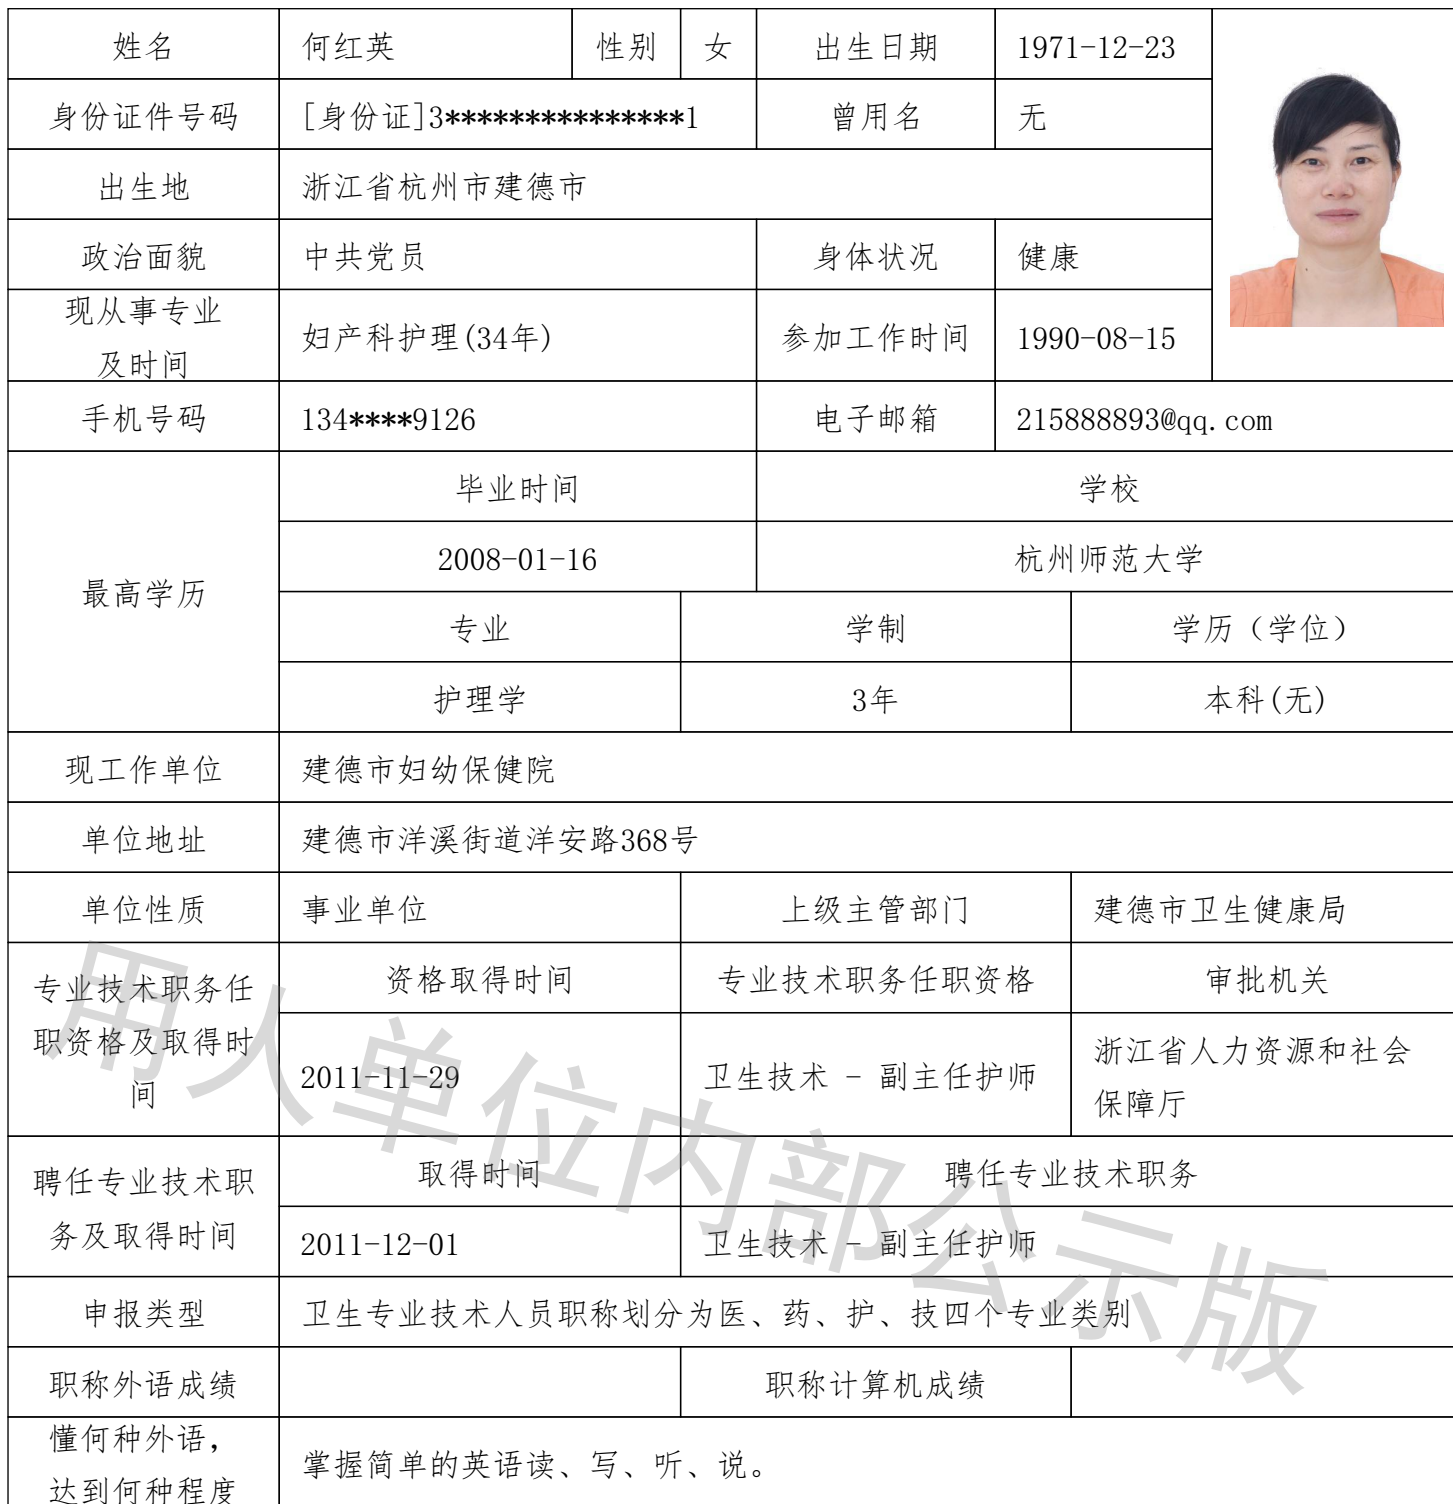 姓名 何红英 性别 女 出生日期 1971-12-23
身份证件号码 [身份证]3***************1 曾用名 无
出生地 浙江省杭州市建德市
政治面貌 中共党员 身体状况 健康
现从事专业
及时间 妇产科护理(34年) 参加工作时间 1990-08-15
手机号码 134****9126 电子邮箱 215888893@qq.com
最高学历
毕业时间 学校
2008-01-16 杭州师范大学
专业 学制 学历（学位）
护理学 3年 本科(无)
现工作单位 建德市妇幼保健院
单位地址 建德市洋溪街道洋安路368号
单位性质 事业单位 上级主管部门 建德市卫生健康局
专业技术职务任
职资格及取得时
间
资格取得时间 专业技术职务任职资格 审批机关
2011-11-29 卫生技术 - 副主任护师 浙江省人力资源和社会
保障厅
聘任专业技术职
务及取得时间
取得时间 聘任专业技术职务
2011-12-01 卫生技术 - 副主任护师
申报类型 卫生专业技术人员职称划分为医、药、护、技四个专业类别
职称外语成绩 职称计算机成绩
懂何种外语，
达到何种程度 掌握简单的英语读、写、听、说。
用人单位内部公示版